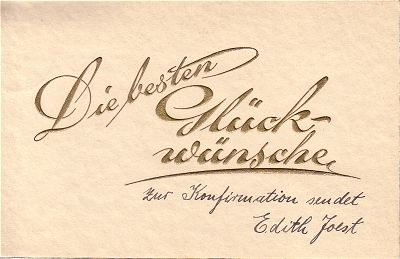 Die besten
Glück-
wünsche
zur Konfirmation sendet
Edith Joest